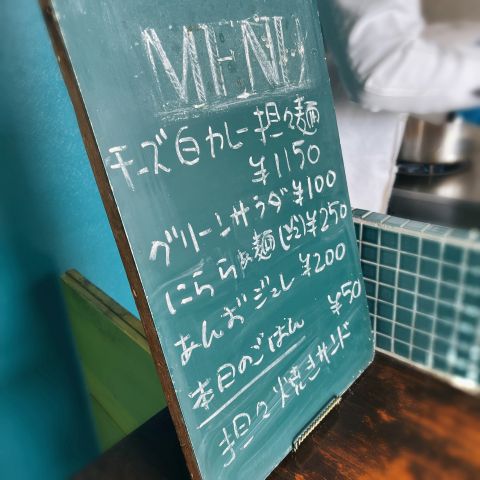 MENU
チーズ白カレー担々麺
¥1150
グリーンサラダ ¥100
麺 ¥250
あんおジュレ ¥200
本日のごはん ¥50
担々焼きサンド